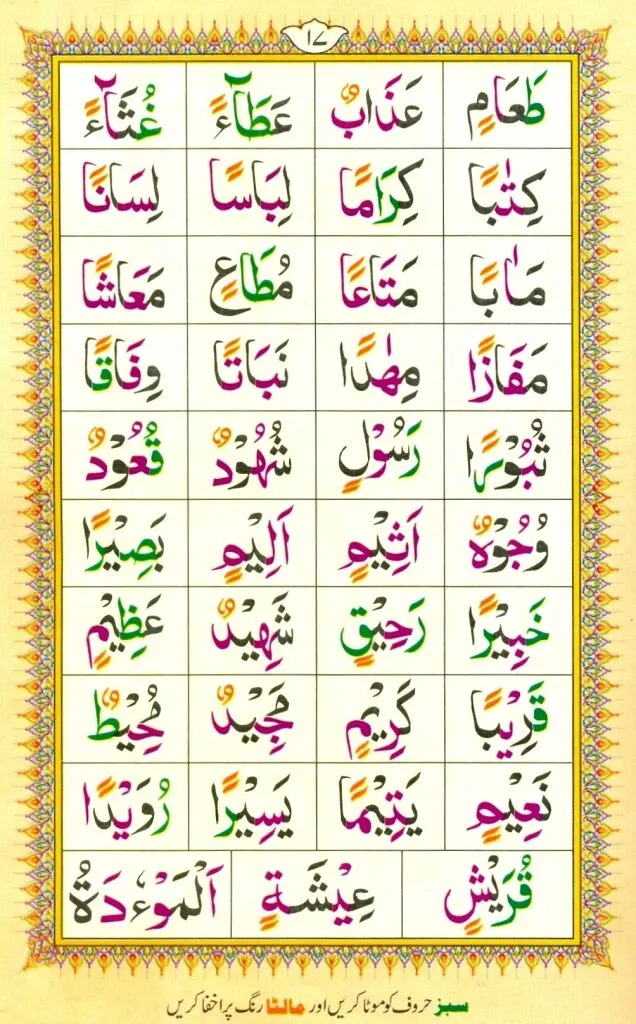 ١٧
طَعَامٍ عَذَابٌ عَطَآءً غُثَآءً
كِتٰبًا كِرَامًا لِبَاسًا لِسَانًا
مَاٰبًا مَتَاعًا مُطَاعٍ مَعَاشًا
مَفَازًا مِهٰدًا نَبَاتًا وِفَاقًا
ثُبُوْرًا رَسُوْلٍ شُهُوْدٌ قُعُوْدٌ
وُجُوْهٌ اَثِيْمٍ اَلِيْمٍ بَصِيْرًا
خَبِيْرًا رَحِيْقٍ شَهِيْدٌ عَظِيْمٍ
قَرِيْبًا كَرِيْمٍ مَجِيْدٌ مُحِيْطٌ
نَعِيْمٍ يَتِيْمًا يَسِيْرًا رُوَيْدًا
قُرَيْشٍ عِيْشَةٍ اَلْمَوْءٗدَةُ
سبز حروف کو موٹا کریں اور مالٹا رنگ پر اخفا کریں